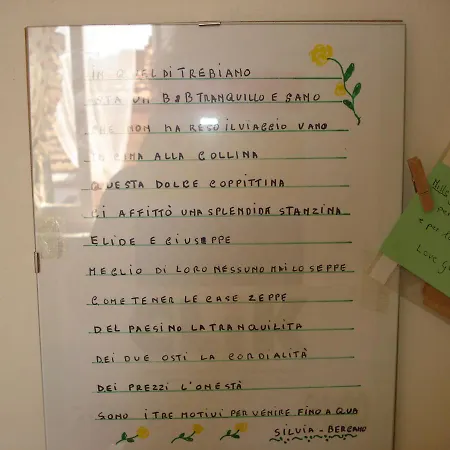 IN QUEL DI TREBIANO
STA UN B&B TRANQUILLO E SANO
CHE NON HA RESO IL VIAGGIO VANO
IN CIMA ALLA COLLINA
QUESTA DOLCE COPPITTINA
CI AFFITTÒ UNA SPLENDIDA STANZINA
ELIDE E GIUSEPPE
MEGLIO DI LORO NESSUNO MAI LO SEPPE
COME TENER LE CASE ZEPPE
DEL PAESINO LA TRANQUILITÀ
DEI DUE OSTI LA CORDIALITÀ
DEI PREZZI L'ONESTÀ
SONO I TRE MOTIVI PER VENIRE FINO A QUA
SILVIA - BERGAMO
Mille
per
e per
Love